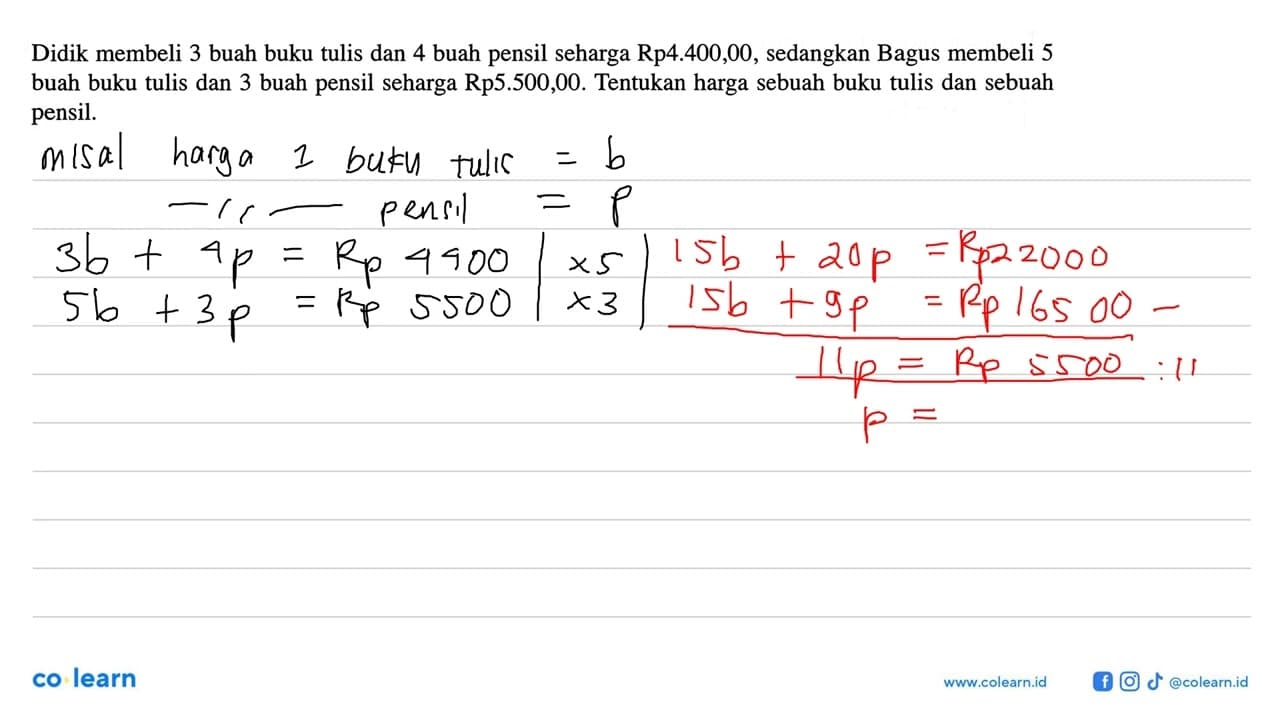 Didik membeli 3 buah buku tulis dan 4 buah pensil seharga Rp4.400,00, sedangkan Bagus membeli 5
buah buku tulis dan 3 buah pensil seharga Rp5.500,00. Tentukan harga sebuah buku tulis dan sebuah
pensil.
misal harga 1 buku tulis = b
—〃— pensil = p
3b + 4p = Rp 4400 | x5 | 15b + 20p = Rp22000
5b + 3p = Rp 5500 | x3 | 15b + 9p = Rp 16500 -
11p = Rp 5500 : 11
p =
co learn
www.colearn.id @colearn.id